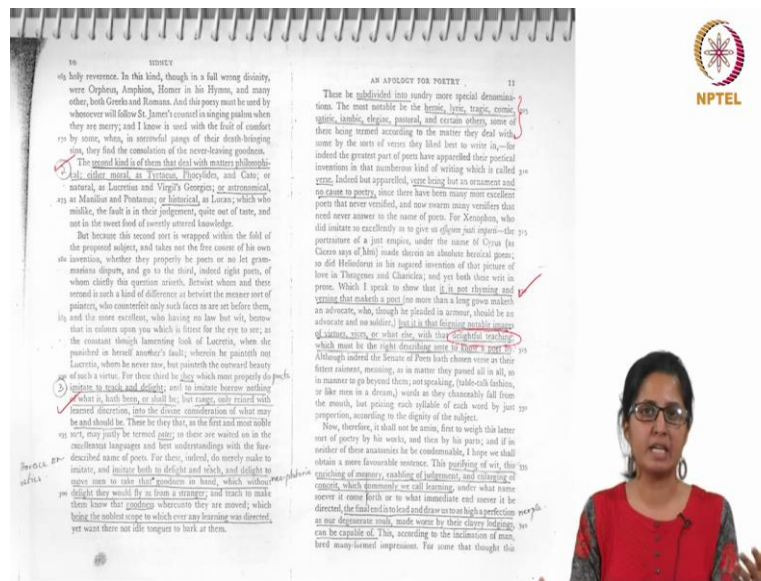 10 SIDNEY
165 holy reverence. In this kind, though in a full wrong divinity,
were Orpheus, Amphion, Homer in his Hymns, and many
other, both Greeks and Romans. And this poesy must be used by
whosoever will follow St. James's counsel in singing psalms when
they are merry; and I know is used with the fruit of comfort
170 by some, when, in sorrowful pangs of their death-bringing
sins, they find the consolation of the never-leaving goodness.
2 The second kind is of them that deal with matters philosophi-
cal: either moral, as Tyrtaeus, Phocylides, and Cato; or
natural, as Lucretius and Virgil's Georgics; or astronomical,
175 as Manilius and Pontanus; or historical, as Lucan; which who
mislike, the fault is in their judgement, quite out of taste, and
not in the sweet food of sweetly uttered knowledge.
But because this second sort is wrapped within the fold of
the proposed subject, and takes not the free course of his own
180 invention, whether they properly be poets or no let gram-
marians dispute, and go to the third, indeed right poets, of
whom chiefly this question ariseth. Betwixt whom and these
second is such a kind of difference as betwixt the meaner sort of
painters, who counterfeit only such faces as are set before them,
185 and the more excellent, who having no law but wit, bestow
that in colours upon you which is fittest for the eye to see; as
the constant though lamenting look of Lucretia, when she
punished in herself another's fault; wherein he painteth not
Lucretia, whom he never saw, but painteth the outward beauty
190 of such a virtue. For these third be they which most properly do
poets
3 imitate to teach and delight; and to imitate borrow nothing
of what is, hath been, or shall be; but range, only reined with
learned discretion, into the divine consideration of what may
be and should be. These be they that, as the first and most noble
195 sort, may justly be termed vates; so these are waited on in the
excellentest languages and best understandings with the fore-
described name of poets. For these, indeed, do merely make to
imitate, and imitate both to delight and teach, and delight to
move men to take that goodness in hand, which without
200 delight they would fly as from a stranger; and teach to make
them know that goodness whereunto they are moved; which
being the noblest scope to which ever any learning was directed,
yet want there not idle tongues to bark at them.
AN APOLOGY FOR POETRY 11
These be subdivided into sundry more special denomina-
tions. The most notable be the heroic, lyric, tragic, comic, 205
satiric, iambic, elegiac, pastoral, and certain others, some of
these being termed according to the matter they deal with,
some by the sorts of verses they liked best to write in,—for
indeed the greatest part of poets have apparelled their poetical
inventions in that numberous kind of writing which is called 210
verse. Indeed but apparelled, verse being but an ornament and
no cause to poetry, since there have been many most excellent
poets that never versified, and now swarm many versifiers that
need never answer to the name of poets. For Xenophon, who
did imitate so excellently as to give us effigiem justi imperii—the 215
portraiture of a just empire, under the name of Cyrus (as
Cicero says of him) made therein an absolute heroical poem;
so did Heliodorus in his sugared invention of that picture of
love in Theagenes and Chariclea; and yet both these writ in
prose. Which I speak to show that it is not rhyming and
versing that maketh a poet (no more than a long gown maketh
an advocate, who, though he pleaded in armour, should be an
advocate and no soldier,) but it is that feigning notable images
of virtues, vices, or what else, with that delightful teaching,
which must be the right describing note to know a poet by
Although indeed the Senate of Poets hath chosen verse as their
fittest raiment, meaning, as in matter they passed all in all, so
in manner to go beyond them; not speaking, (table-talk fashion,
or like men in a dream,) words as they chanceably fall from
the mouth, but peizing each syllable of each word by just
proportion, according to the dignity of the subject.
Now, therefore, it shall not be amiss, first to weigh this latter
sort of poetry by his works, and then by his parts; and if in
neither of these anatomies he be condemnable, I hope we shall
obtain a more favourable sentence. This purifying of wit, this
enriching of memory, enabling of judgement, and enlarging of
conceit, which commonly we call learning, under what name
soever it come forth or to what immediate end soever it be
directed, the final end is to lead and draw us to as high a perfection
as our degenerate souls, made worse by their clayey lodgings,
can be capable of. This, according to the inclination of man,
bred many-formed impressions. For some that thought this
NPTEL